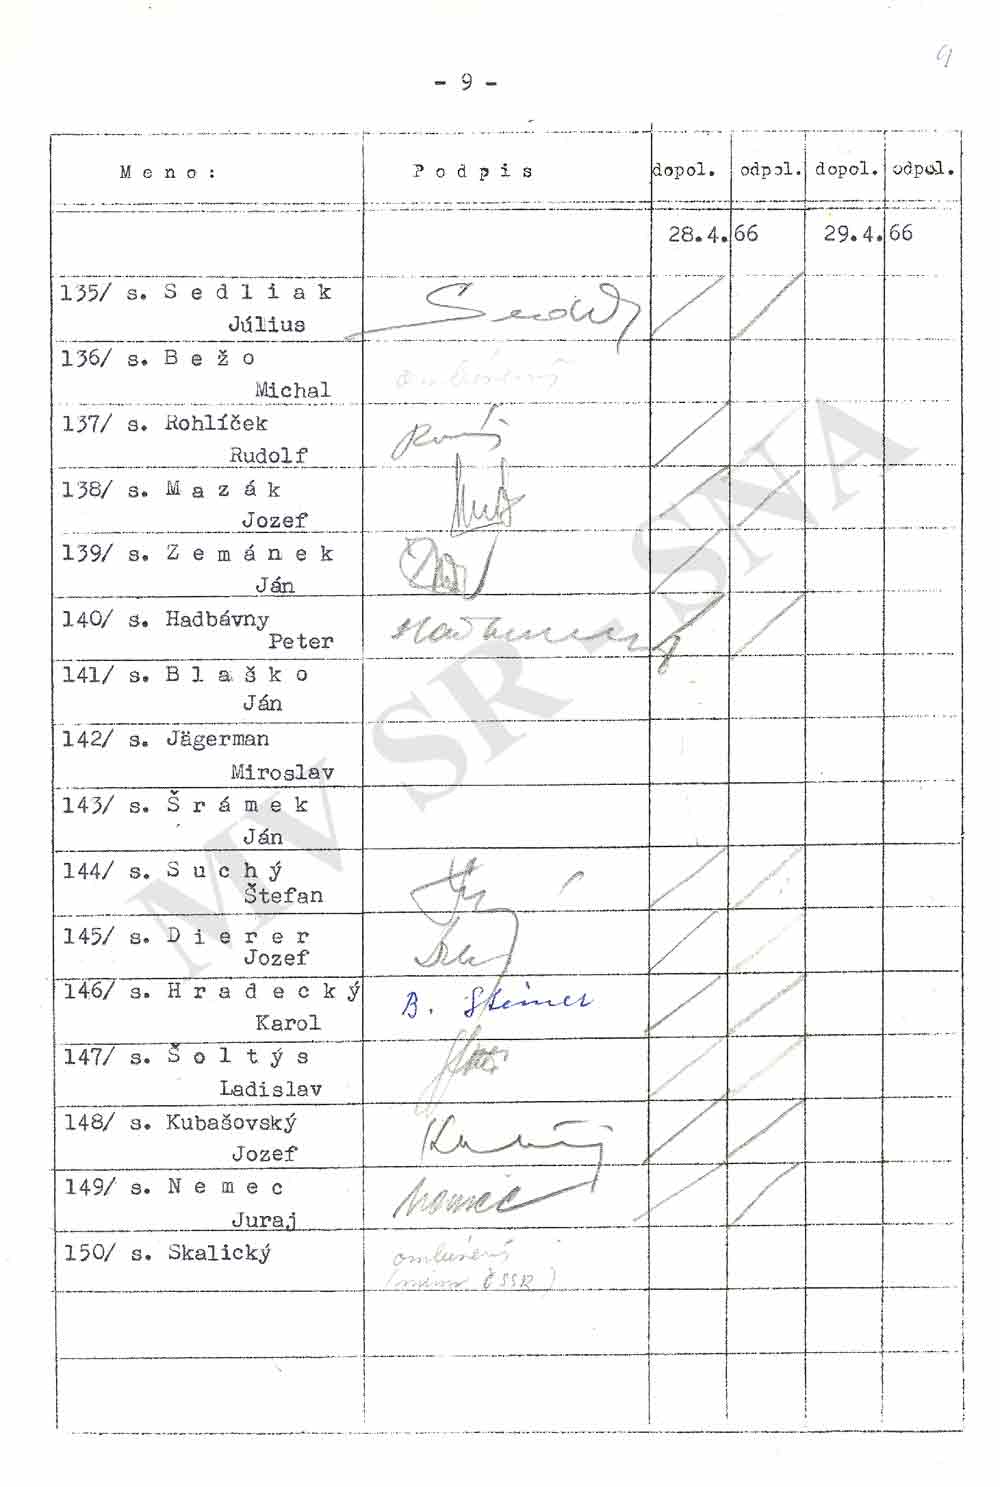 9
- 9 -
Meno: Podpis dopol. odpol. dopol. odpol.
28.4.66 29.4.66
135/ s. Sedliak
Július
136/ s. Bežo
Michal
137/ s. Rohlíček
Rudolf
138/ s. Mazák
Jozef
139/ s. Zemánek
Ján
140/ s. Hadbávny
Peter
141/ s. Blaško
Ján
142/ s. Jägerman
Miroslav
143/ s. Šrámek
Ján
144/ s. Suchý
Štefan
145/ s. Dierer
Jozef
146/ s. Hradecký B. Steiner
Karol
147/ s. Šoltýs
Ladislav
148/ s. Kubašovský
Jozef
149/ s. Nemec Nemec
Juraj
150/ s. Skalický
ČSSR)
MV SR - SNA